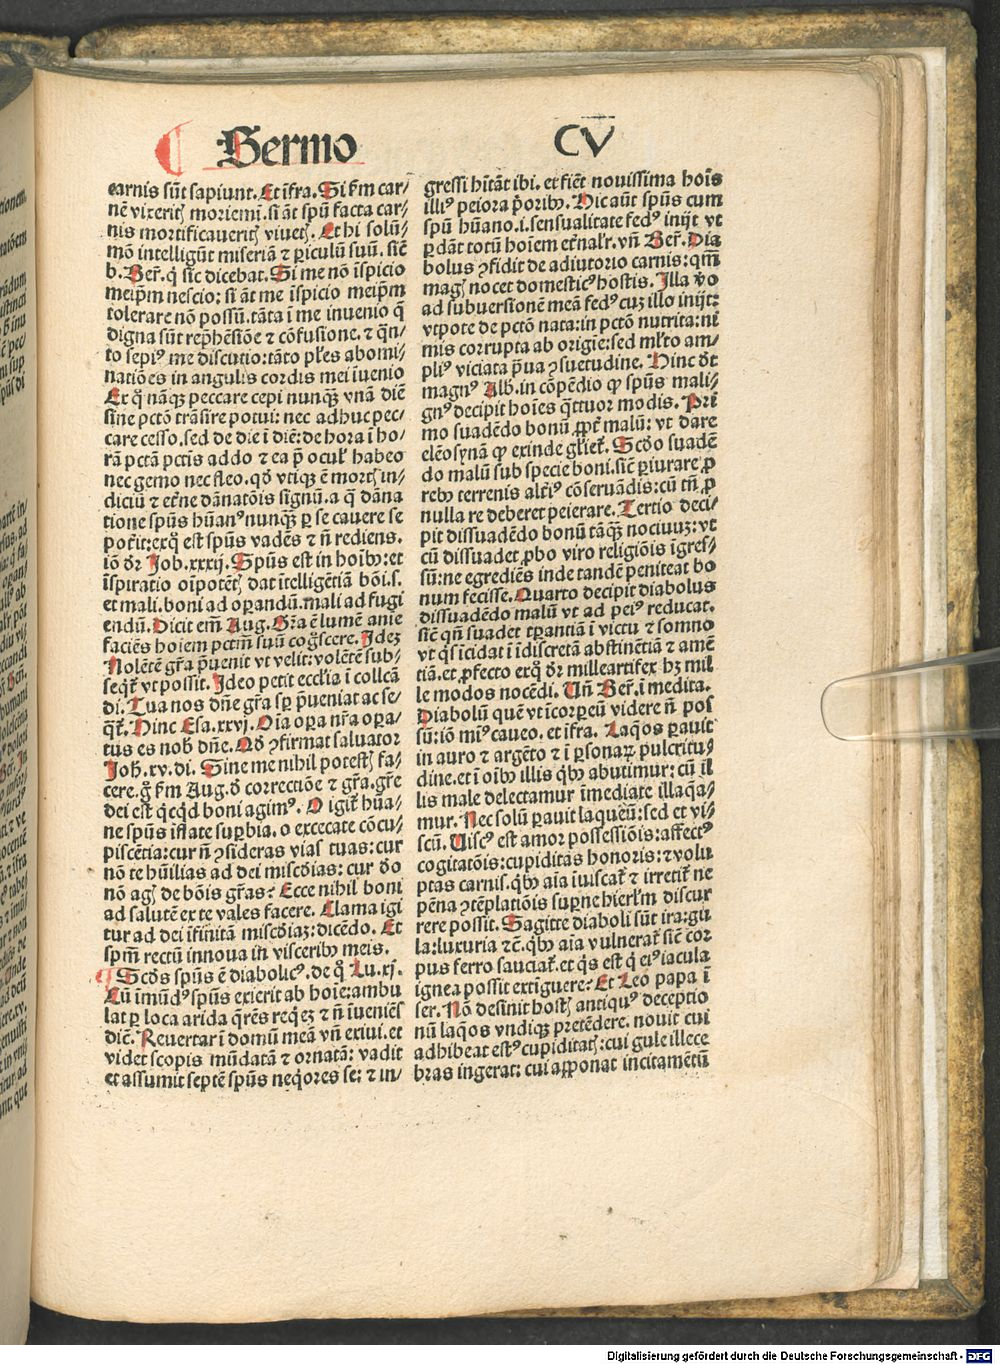 Sermo CV
carnis sūt sapiunt. Et īfra. Si ẜm car⸗
nē vixeritꝭ moriemī. si āt spū facta car⸗
nis mortificaueritꝭ viuetꝭ. Et hi solū⸗
mō intelligūt miseriā ⁊ ꝑiculū suū. sic̄
b. Ber̄. q̇ sic̄ dicebat. Si me nō īspicio
meip̄m nescio; si āt me īspicio meip̄m
tolerare nō possū. tāta ī me inuenio q̄
digna sūt rep̄hēsiōe ⁊ cōfusione. ⁊ q̄n⸗
to sepiꝰ me discutio: tāto pl̄es abomi⸗
natiōes in angulis cordis mei īuenio
Ex q̇ nāqꝫ peccare cepi nunqꝫ vnā diē
sine pctō trāsire potui: nec adhuc pec⸗
care cesso. sed de die ī diē: de hora ī ho⸗
rā pctā pctis addo ⁊ ea p̄ ocul̕ habeo
nec gemo nec fleo. qd̕ vtiqꝫ ē mortꝭ in⸗
diciū ⁊ et̄ne dānatōis signū. a q̄ dāna
tione spūs hūanꝰ nunqꝫ ꝑ se cauere se
poter̄it: exq̇ est spūs vadēs ⁊ n̄ rediens.
iō dr̄ Job. xxxij. Spūs est in hoībꝫ: et
īspiratio oīpotētꝭ dat ītelligētiā bōi. s.
et mali. boni ad oꝑandū. mali ad fugi
endū. Dicit em̄ Aug. Gr̄a ē lumē ante
faciēs hoiem pctm̄ suū cogscere. Idez
Nolētē gr̄a p̄uenit vt velit: volētē sub⸗
seqt̄ vt possit. Ideo petit ecclia ī collcā
di. Tua nos dn̄e gr̄a sꝑ p̄ueniat ac se⸗
qt̄. Hinc Esa. xxvj. Oīa oꝑa nr̄a oꝑa⸗
tus es nob̕ dn̄e. Qd̕ ꝯfirmat saluator
Joh. xv. di. Sine me nihil potestꝭ fa⸗
cere. g̊ ẜm Aug. d̕ correctiōe ⁊ gr̄a. gr̄e
dei est qcqd boni agimꝰ. O igit̄ hūa⸗
ne spūs īflate suꝑbia. o excecate cōcu⸗
piscētia: cur n̄ ꝯsideras vias tuas: cur
nō te hūilias ad dei miscd̕ias: cur d̕o
nō agꝭ de bōis gr̄as? Ecce nihil boni
ad salutē ex te vales facere. Clama igi
tur ad dei īfinitā miscd̕iaꝫ: dicēdo. Et
spm̄ rectū innoua in visceribꝫ meis.
Scd̕s spūs ē diabolicꝰ. de q̊ Lu. xj.
Cū īmūdꝰ spūs exierit ab hoie: ambu
lat ꝑ loca arida q̄rēs reqeꝫ ⁊ n̄ īueniēs
diē. Reuertar ī domū meā vn̄ exiui. et
videt scopis mūdatā ⁊ ornatā: vadit
et assumit septē spūs neq̇ores se: ⁊ in⸗
gressi hītāt ibi. et fiēt nouissima hoīs
illiꝰ peiora p̄oribꝫ. Hic aūt spūs cum
spū hūano. i. sensualitate fedꝰ inijt vt
ꝑdāt totū hoīem et̄nalr̄. vn̄ Ber̄. Dia
bolus ꝯfidit de adiutorio carnis: qm̄
magꝭ nocet domesticꝰ hostis. Illa v̕o
ad subuersionē meā fedꝰ cuꝫ illo inijt:
vtpote de pctō nata: in pctō nutrita: ni
mis corrupta ab origīe: sed ml̕to am⸗
pliꝰ viciata p̄ua ꝯsuetudine. Hinc dt̄
magnꝰ Alb̕. in cōpēdio ꝙ spūs mali⸗
gnꝰ decipit hoīes q̄ttuor modis. Pri⸗
mo suadēdo bonū ꝓpt̄ malū: vt dare
elēosynā ꝙ exinde gl̕iet̄. Scd̕o suadē
do malū sub specie boni. sic̄ ꝑiurare ꝓ
rebꝫ terrenis alt̄iꝰ cōseruādis: cū tn̄ ꝓ
nulla re deberet peierare. Tertio deci⸗
pit dissuadēdo bonū tāqꝫ nociuuꝫ: vt
cū dissuadet ꝓbo viro religiōis īgres⸗
sū: ne egrediēs inde tandē peniteat bo
num fecisse. Quarto decipit diabolus
dissuadēdo malū vt ad peiꝰ reducat.
sic̄ qn̄ suadet tꝑantiā ī victu ⁊ somno
vt q̇s īcidat ī īdiscretā abstinētiā ⁊ amē
tiā. et ꝓfecto exq̇ dr̄ milleartifex hꝫ mil
le modos nocēdi. Vn̄ Ber̄. ī medita.
Diabolū quē vt īcorꝑeū videre n̄ pos
sū: iō miꝰ caueo. et īfra. Laqōs ꝑauit
in auro ⁊ argēto ⁊ ī ꝑsonaꝝ pulcritu⸗
dine. et ī oībꝫ illis qbꝫ abutimur: cū il
lis male delectamur īmediate illaqa⸗
mur. Nec solū ꝑauit laqueū: sed et vi⸗
scū. Viscꝰ est amor possessiōis: affectꝰ
cogitatōis: cupiditas honoris: ⁊ volu
ptas carnis. qbꝫ aīa iuiscat̄ ⁊ irretit̄ ne
pēna ꝯtēplatiōis suꝑne hierlm̄ discur
rere possit. Sagitte diaboli sūt ira: gu
la: luxuria ⁊c̄. qbꝫ aīa vulnerat̄ sic̄ cor
pus ferro sauciat̄. et q̇s est q̇ eiꝰ iacula
ignea possit extiguere? Et Leo papa ī
ser. Nō desinit hostꝭ antiquꝰ deceptio
nū laqōs vndiqꝫ pretēdere. nouit cui
adhibeat estꝰ cupiditatꝭ: cui gule illece
bras ingerat: cui apponat incitamētū
Digitalisierung gefördert durch die Deutsche Forschungsgemeinschaft - DFG